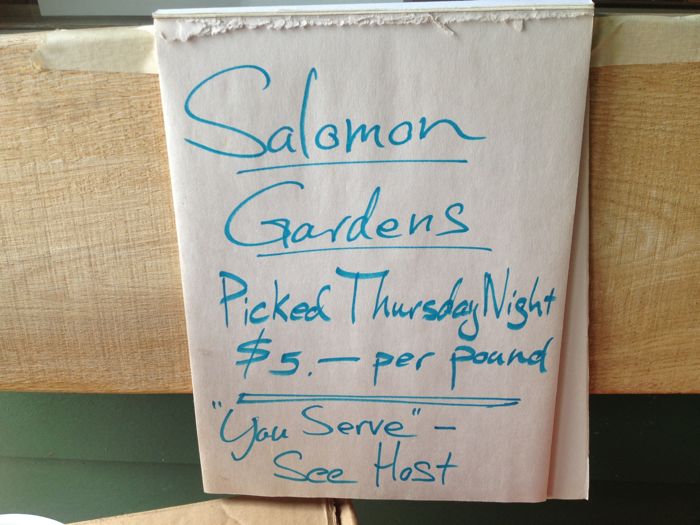 Salomon
Gardens
Picked Thursday Night
$5.— per pound
"You Serve" -
See Host